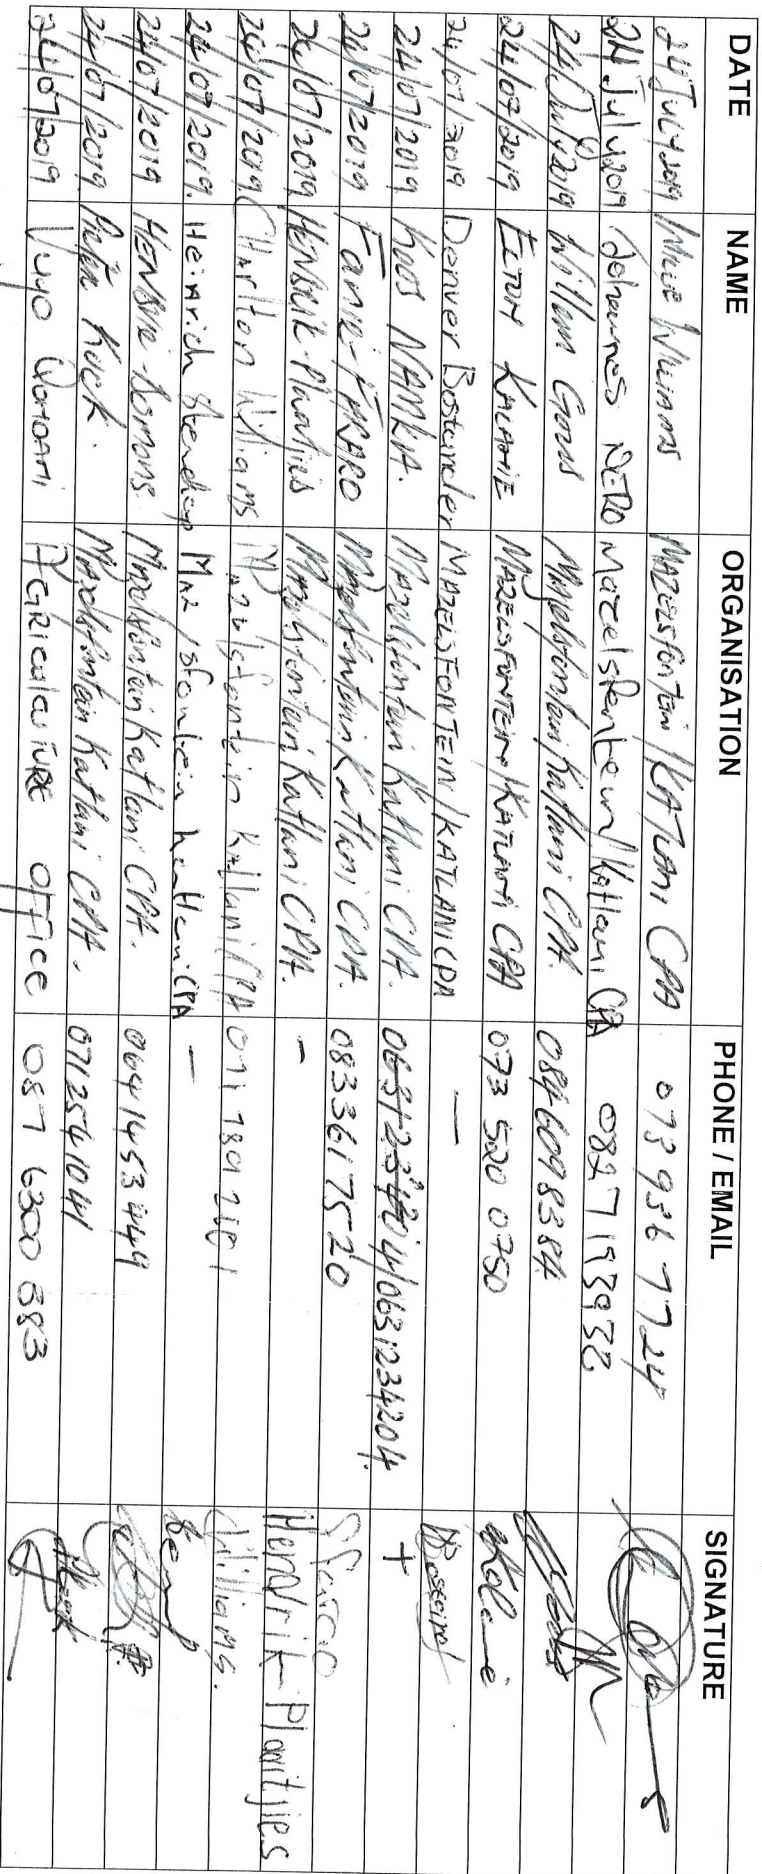 DATE NAME ORGANISATION PHONE / EMAIL SIGNATURE
24 July 2019 Williams MAZELSFONTEIN / KATLANI CPA 073 936 7724
24 July 2019 Johannes NERO Mazelsfontein / Katlani CPA 0827193932
24 July 2019 Willem Gous Mazelsfontein Katlani CPA. 0846098384
24/07/2019 ELTON KALANIE MAZELSFONTEIN / KATLANI CPA 073 520 0750
24/07/2019 Denver Bostander MAZELSFONTEIN / KATLANI CPA —
24/07/2019 KOOS NAMKA. Mazelsfontein Katlani CPA. 0631234204. +
24/07/2019 Fanie-FARARO Mazelsfontein Katlani CPA. 0833617520
24/07/2019 HENDRIK-Plaatjies Mazelsfontein Katlani CPA. - Hendrik Plaatjies
24/07/2019 Charlton Williams Mazelsfontein Katlani CPA 071 789 2101 Williams.
24/07/2019. Heinrich Mazelsfontein Katlani CPA —
24/07/2019 Mazelsfontein Katlani CPA. 0641453449
24/07/2019 Mazelsfontein Katlani CPA. 0712541041
24/07/2019 VUYO AGRICULATURE OFFICE 087 6300 383